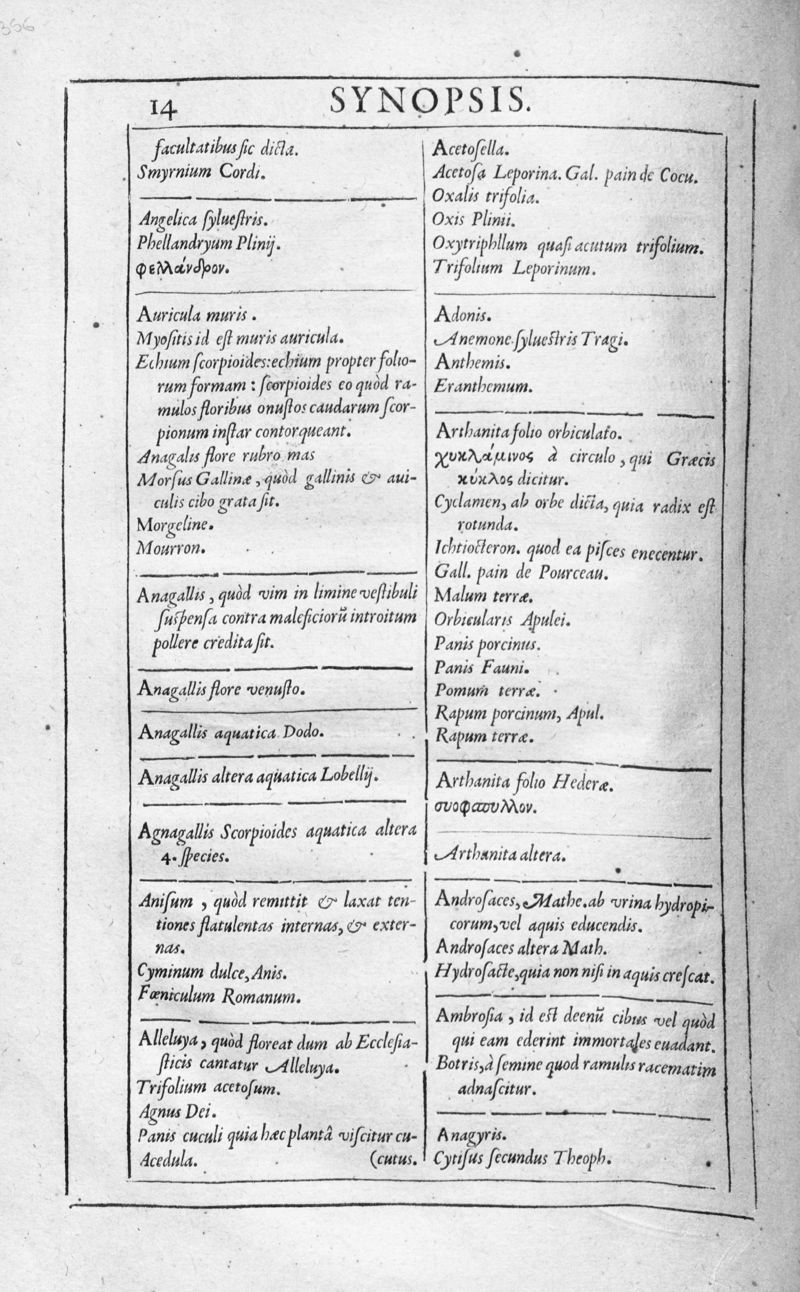 356
14
SYNOPSIS.
facultatibus sic dicta.
Smyrnium Cordi.
Angelica syluestris.
Phellandryum Plinij.
φελλάνδρον.
Auricula muris .
Myositis id est muris auricula.
Echium scorpioides: echium propter folio-
rum formam : scorpioides eo quòd ra-
mulos floribus onustos caudarum scor-
pionum instar contorqueant.
Anagalis flore rubro mas
Morsus Gallinæ, quòd gallinis & aui-
culis cibo grata sit.
Morgeline.
Mourron.
Anagallis, quòd vim in limine vestibuli
suspensa contra maleficiorũ introitum
pollere credita sit.
Anagallis flore venusto.
Anagallis aquatica Dodo.
Anagallis altera aquatica Lobellij.
Agnagallis Scorpioides aquatica altera
4. species.
Anisum , quòd remittit & laxat ten-
tiones flatulentas internas, & exter-
nas.
Cyminum dulce, Anis.
Fœniculum Romanum.
Alleluya, quòd floreat dum ab Ecclesia-
sticis cantatur Alleluya.
Trifolium acetosum.
Agnus Dei.
Panis cuculi quia hæc plantâ viscitur cu-
Acedula. (cutus.
Acetosella.
Acetosa Leporina. Gal. pain de Cocu.
Oxalis trifolia.
Oxis Plinii.
Oxytriphllum quasi acutum trifolium.
Trifolium Leporinum.
Adonis.
Anemone syluestris Tragi.
Anthemis.
Eranthemum.
Arthanita folio orbiculato.
χυκλάμινος à circulo, qui Græcis
κύκλος dicitur.
Cyclamen, ab orbe dicta, quia radix est
rotunda.
Ichtiocteron. quod ea pisces enecentur.
Gall. pain de Pourceau.
Malum terræ.
Orbicularis Apulei.
Panis porcinus.
Panis Fauni.
Pomum terræ.
Rapum porcinum, Apul.
Rapum terræ.
Arthanita folio Hederæ.
συοφασυλλον.
Arthanita altera.
Androsaces, Mathe. ab vrina hydropi-
corum, vel aquis educendis.
Androsaces altera Math.
Hydrosacte, quia non nisi in aquis crescat.
Ambrosia , id est deenũ cibus vel quòd
qui eam ederint immortales euadant.
Botris, à semine quod ramulis racematim
adnascitur.
Anagyris.
Cytisus secundus Theoph.